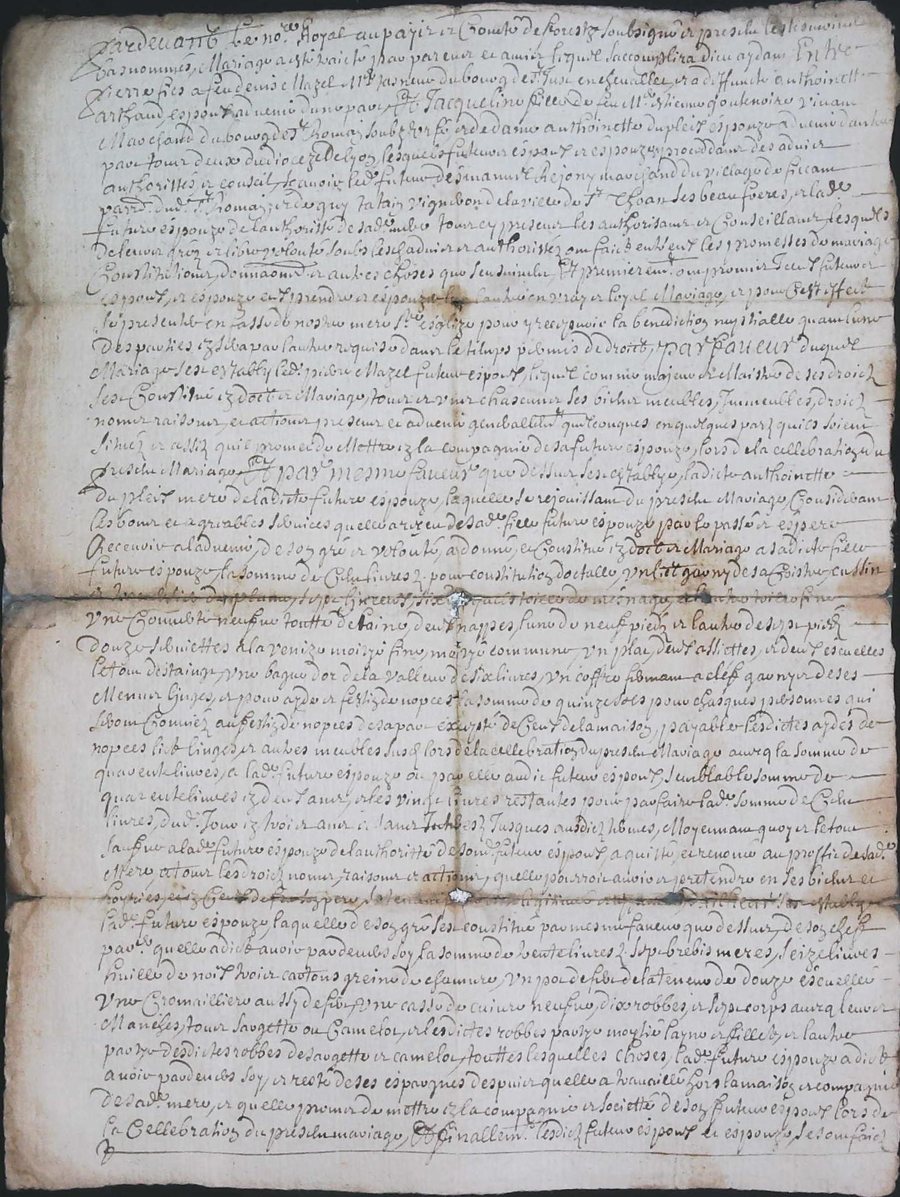 Pardevant le no.re Royal au pays et Comté de Forestz soubsigné et presentz les tesmoings
bas nommes, Mariage a esté traicté par parens et amis lequel saccomplira Dieu aydant Entre
Pierre fils a feu Denis Mazel M.re du bourg de S.t Just en chevallet, et a deffuncte Anthoinette
Arthaud espoux advenir d'une part, Et Jacqueline fille de feu M.re Estienne vivant
Marchand du bourg de S.t Romain soubz et de dame Anthoinette Dupleit espouze advenir d'autre
part tous deux du dioceze de Lyon, lesquels futeurs espoux et espouze procedans des advis
authorittés et conseil, scavoir led. futeur de marchand du village de
parr. dud. S.t Romain et de Guy vigneron de la ville de S.t ses beaufreres, et lad.e
future espouze de l'authoritté de sad.e mere tous cy presens les authorisans et Conseillans Lesquels
de leur gré et libre volonté soubz lesd. advis et authorittes ont faict entre eux les promesses de mariage
Constitutions, donnaons et autres choses que sensuivent, Et premierem.t ont promis Iceux futeurs
espoux, et espouze eux prendre et espouzer l'un l'autre en vray et loyal Mariage, et pour cest effect
se presenter en fasse de nostre mere S.te esglize pour y recepvoir la benediction nuptialle quand l'une
des parties en sera par l'autre requise dans le temps permis de droict, par faveur duquel
Mariage sest estably led. pierre Mazel futeur espoux, lequel comme majeur et Maistre de ses droictz
sest Constitué en doct et Mariage, tous et uns chascuns ses biens meubles, Immeubles, droictz
noms raisons, et actions presens et advenir generallem.t quelconques en quelques partz quils soient
situez et assiz quil promet de Mettre en la compagnie de sa future espouze, lors de la cellebration du
presant Mariage Et par mesme faveur que dessus sest establye, ladicte anthoinette
du pleit mere de ladicte future espouze, laquelle se rejouissant du presant Mariage, Considerant
les bons et agreables services quelle a receu de sad.e fille future espouze par le passé et espere
Recevoir a l'advenir, de son gré et volonté, a donné, et Constitué en doct et Mariage a sadicte fille
future espouze, la somme de Cent livres, pour constitution doctalle, Un lict garny de sa Coistre, cussin
de plume, toille de mesnage et l'autre toille fine
Une Couverte neufve toutte de laine, deux nappes, l'une de neuf piedz et l'autre de sept piedz
Douze serviettes a la venize moityé fine, moityé commune, un plat, deux assiettes, et deux escuelles
le tout destaing, une bague d'or de la valleur de six livres, un coffre fermant a clefz garny de ses
Menus linges, et pour aydes et festin de nopces la somme de quinze solz pour chasques personnes qui
seront Conviez au festin de nopces de sa part excepté de Ceux de la maison, payable lesdictes aydes de
nopces lict linges, et autres meubles susd. lors de la cellebration du presant Mariage avecq la somme de
quarente livres, a lad.e future espouze ou par elle audict futeur espoux, semblable somme de
quarente livres en deux ans, et les vingt livres restantes pour parfaire lad.e somme de Cent
livres, dud. Jour en trois ans Jusques ausdictz termes, Moyennant quoy et le tout
sauf que a lad.e future espouze de l'authoritté de sond. futeur espoux a quitté, et renoncé au proffict de sad.e
Mere a tous les droictz noms, raisons et actions, quelle pourroit avoir et pretendre en ses biens et
hoyries, et en Ceux de feu son pere, d'ailheurs sest establye
lad.e future espouze laquelle de son gré sest constituée par mesme faveur que dessus, de son cheft
par.er quelle a dict avoir pardevers soy la somme de trente livres, Sept brebis meres, seize livres
huille de noix trois cartons greine de chanvre, un pot de fer de la teneur de douze escuelles
Une Cromailliere aussy de fer, une casse de cuivre neufve, dix robbes, et sept corps avecq leurs
Manches, tous sargette ou Camelot, et lesdictes robbes partye moytié layne et fillet, et l'autre
partye desdictes robbes de sargette et camelot, touttes lesquelles choses, lad.e future espouze a dict
avoir pardevers soy, et resté de ses espargnes despuis quelle a travaillé hors la maison et compagnie
de sad.e mere, et quelle promet de mettre en la compagnie et societté de son futeur espoux lors de
la Cellebration du presant mariage, Et finallem.t lesdictz futeurs espoux et espouze, se sont faictz